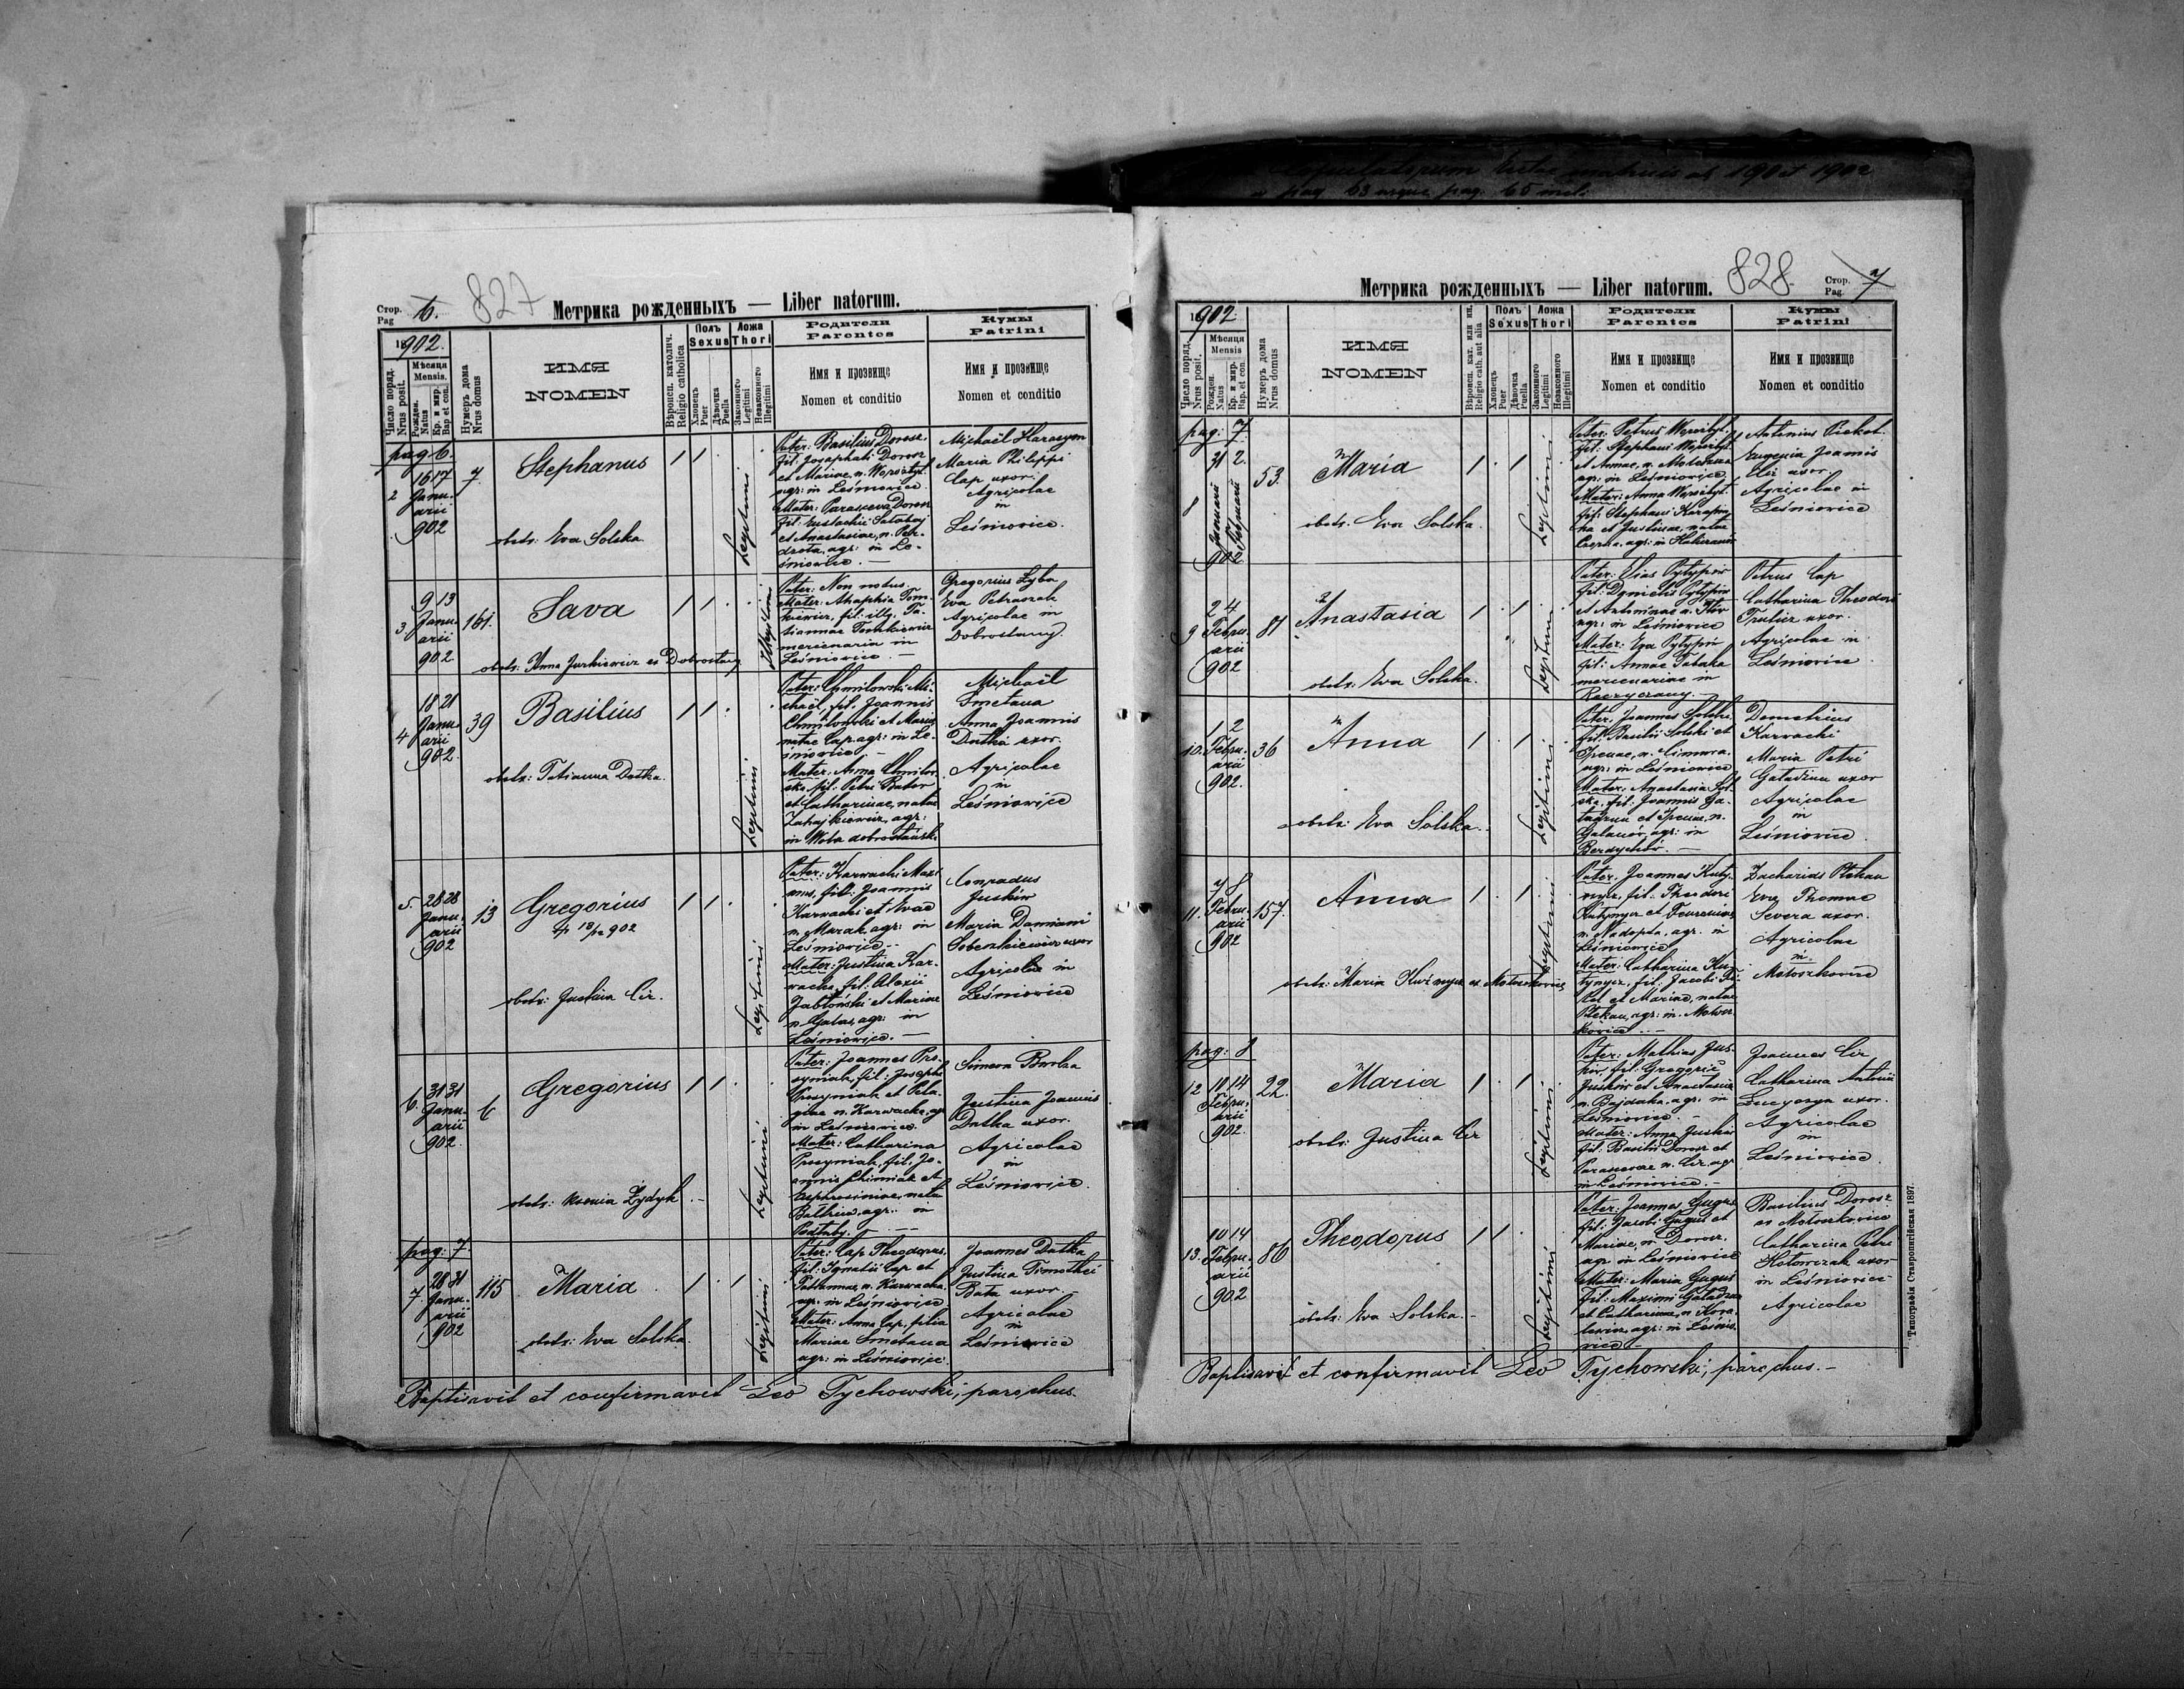 Стор.
Pag
6.
827
Метрика рожденныхъ — Liber natorum.
1902.
Число поряд.
Nrus posit.
Мѣсяця
Mensis.
Рожден.
Natus
Кр. и мир.
Bap et con.
Нумеръ дома
Nrus domus
ИМЯ
NOMEN
Вѣроисп. католич.
Religio catholica
Полъ
Sexus
Хлопецъ
Puer
Дѣвочка
Puella
Ложа
Thori
Законного
Legitimi
Незаконного
Illegitimi
Родители
Parentes
Имя и прозвище
Nomen et conditio
Кумы
Patrini
Имя и прозвище
Nomen et conditio
pag. 6.
2
16 17
Janu-
arii
902
7
Stephanus
obstr: Eva Solska
Legitimi
Pater: Basilius Dorosz,
fil: Josaphati Dorosz
et Mariae, n.
agr: in Leśniowice
Mater: Parasceva Dorosz
fil: Eustachii
et Anastasiae, n.
agr: in Le-
śniowice. —
Michaël Harasym
Maria Philippi
Cap uxor.
Agricolae
in
Leśniowice.
3
9 13
Janu-
arii
902
161.
Sava
obstr: Anna Jurkiewicz ex Dobrostany
Illegitimi
Pater: Non notus.
Mater: Ahaphia Tom-
kiewicz, fil: illg. Ta-
tiannae Tomkiewicz
mercenaria in
Leśniowice. —
Gregorius Zyba
Eva Petraszak
Agricolae in
Dobrostany.
4
18 21
Janu-
arii
902.
39
Basilius
obstr: Tatianna Datka.
Legitimi
Pater: Chmilowski Mi-
chaël, fil: Joannis
Chmilowski et Maria
natae Cap agr: in Le-
śniowice —
Mater: Anna Chmilow-
ska, fil: Petri
et Catharinae, natae
agr:
in Wola dobrostańska
Michaël
Smetana
Anna Joannis
Datka uxor.
Agricolae
in
Leśniowice
5.
28 28
Janu-
arii
902
13
Gregorius
obstr: Justina Cir.
Legitimi
Pater: Karwacki Maxi-
mus, fil: Joannis
Karwacki et Evae
n. Mazak agr: in
Leśniowice —
Mater: Justina Kar-
wacka, fil: Alexii
Jabłoński et Mariae
n. Galas, agr: in
Leśniowice. —
Conradus
Juskiw
Maria Damiani
Sobenkiewicz uxor
Agricolae in
Leśniowice
6.
31 31
Janu-
arii
902.
6
Gregorius
obstr: Ksenia Zydyk. —
Legitimi
Pater: Joannes Pro-
cyniak, fil: Josephi
Procyniak et Pela-
giae n. Karwacka, agr
in Leśniowice.
Mater: Catharina
Procyniak, fil: Jo-
annis Chimiak et
Euphrosiniae, nata
agr: in
Simeon
Justina Joannis
Datka uxor.
Agricolae
in
Leśniowice.
pag: 7.
7.
28 31
Janu-
arii
902
115
Maria
obstr: Eva Solska.
Legitimi
Pater: Cap Theodorus,
fil: Ignatii Cap et
Tatiannae, n. Karwacka
agr: in Leśniowice
Mater: Anna Cap, filia
Mariae Smetana
agr: in Leśniowice.
Joannes Datka
Justina Timothei
Bata uxor. —
Agricolae
in
Leśniowice
Baptisavit et confirmavit Leo Tychowski, parochus.
1902 et 1902
a pag 63 usque pag. 65 incl.
828.
Стор.
Pag.
7
Метрика рожденныхъ — Liber natorum.
1902.
Число поряд.
Nrus posit.
Мѣсяця
Mensis
Рожден.
Natus
Кр. и мир.
Bap. et con.
Нумеръ дома
Nrus domus
ИМЯ
NOMEN
Вѣроисп. кат. или ин.
Religio cath. aut alia
Полъ
Sexus
Хлопецъ
Puer
Дѣвочка
Puella
Ложа
Thori
Законного
Legitimi
Незаконного
Illegitimi
Родители
Parentes
Имя и прозвище
Nomen et conditio
Кумы
Patrini
Имя и прозвище
Nomen et conditio
pag: 7.
8
31 2.
Januarii
Februarii
902
53.
Maria
obstr. Eva Solska.
Legitimi
Pater: Petrus
fil: Stephani
et Annae, n.
agr: in Leśniowice
Mater: Anna
fil: Stephani
et Justinae, natae
agr: in
Antonius Pickot.
Eugenia Joannis
Cir uxor.
Agricolae in
Leśniowice
9
2 4
Febru-
arii
902
81
Anastasia
obstr: Eva Solska.
Legitimi
Pater: Elias Pylypiw
fil: Dymetri Pylypiw
et Antoninae n.
agr: in Leśniowice
Mater: Eva Pylypiw
fil: Annae Tabaka
mercenariae in
Rzeczyczany. —
Petrus Cap
Catharina Theodori
uxor.
Agricolae in
Leśniowice
10.
1 2
Febru-
arii
902.
36
Anna
obstr: Eva Solska.
Legitimi
Pater: Joannes Solski,
fil: Basilii Solski et
Irenae, n.
agr: in Leśniowice
Mater: Anastasia Sol-
ska, fil: Joannis Ga-
ladzun et Irenae, n.
agr: in
Berdychów. —
Demetrius
Karwacki
Maria Petri
Galadzun uxor
Agricolae
in
Leśniowice.
11.
7 8
Febru-
arii
902
157.
Anna
obstr: Maria ex Mołoszkowice
Legitimi
Pater: Joannes Kuty-
nycz, fil: Theodori
Kutynycz et
n. agr. in
Leśniowice
Mater: Catharina Ku-
tynycz, fil: Jacobi
et Mariae, natae
Ptekan, agr: in Mołosz-
kowice. —
Zacharias Ptekan
Eva Thomae
Severa uxor.
Agricolae
in
Mołoszkowice
pag: 8
12
10 14
Febru-
arii
902.
22.
Maria
obstr: Justina Cir
Legitimi
Pater: Mathias Jus-
kiw, fil: Gregorii
Juskiw et Anastasiae
n. Bajdaka, agr: in
Leśniowice. —
Mater: Anna Juskiw
fil: Basilii Dorosz et
Parascevae n. Cir, agr
in Leśniowice. —
Joannes Cir
Catharina Antonii
uxor.
Agricolae
in
Leśniowice.
13.
10 14
Febru-
arii
902
86
Theodorus
obstr: Eva Solska. —
Legitimi
Pater: Joannes Guguś
fil: Jacobi Guguś et
Mariae, n. Dorosz.
agr in Leśniowice
Mater: Maria Guguś
fil: Maximi Galadzun
et Catharinae, n. Kowa-
lewicz, agr: in Leśnio-
wice —
Basilius Dorosz
ex Mołoszkowice
Catharina Petri
Kotowczak uxor
in Leśniowice
Agricolae
Baptisavit et confirmavit Leo Tychowski, parochus. —
Типографія Ставропигійская 1897.